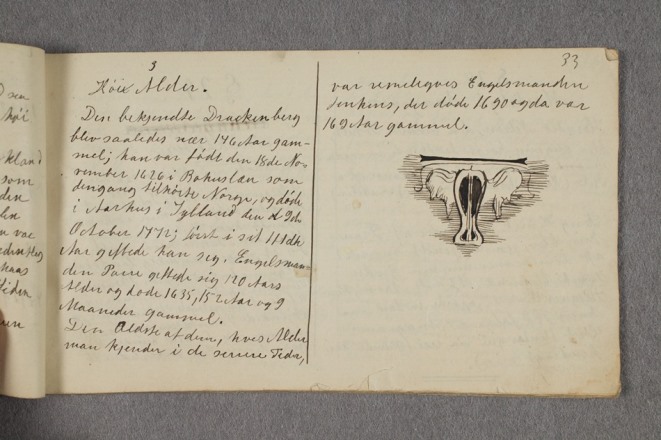 33
3
Höie Alder.
Den bekjendte Drackenberg
blev saaledes nær 146 Aar gam-
mel; han var født den 18de No-
vember 1626 i Bohuslæn som
dengang tilhørte Norge, og døde
i Aarhus i Jylland den 9de
October 1772; først i sit 111de
Aar giftede han sig. Engelsman-
den Parre giftede sig 120 Aars
Alder og døde 1635, 152 Aar og 9
Maaneder gammel.
Den Ældste af dem, hvis Alder
man kjender i de senere Tider,
var Engelsmanden
Jenkins, der døde 1690 og da var
169 Aar gammel.